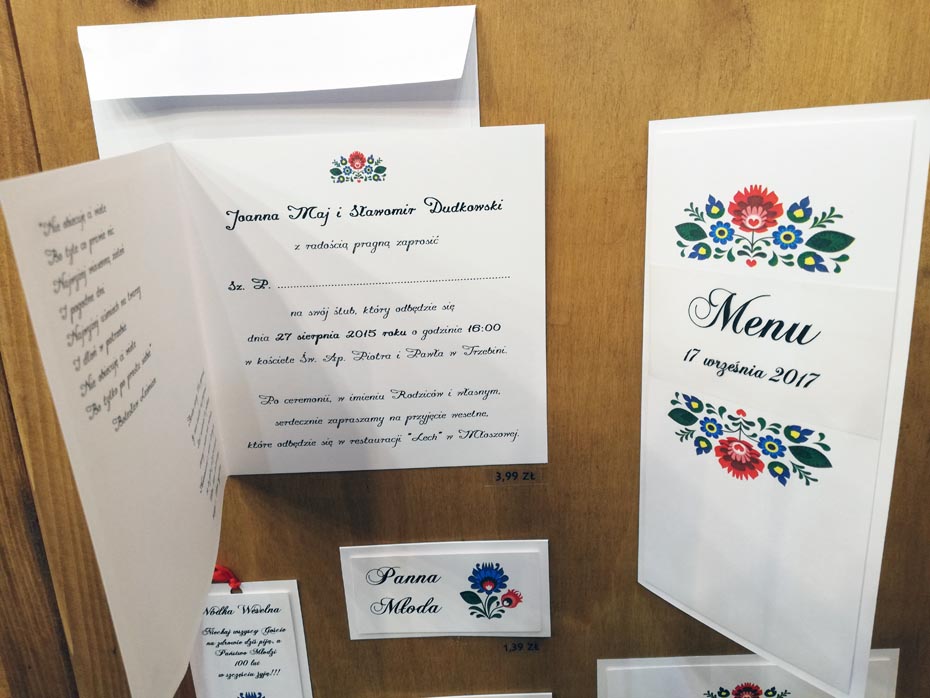 Nie obiecuję ci wiele
Bo tyle co prawie nic
Najwyżej wiosenną zieleń
I pogodne dni
Najwyżej uśmiech na twarzy
I dłoń w potrzebie
Nie obiecuję ci wiele
Bo tylko po prostu siebie
Bolesław Leśmian
Joanna Maj i Sławomir Dudkowski
z radością pragną zaprosić
Sz. P. ........................
na swój ślub, który odbędzie się
dnia 27 sierpnia 2015 roku o godzinie 16:00
w kościele Św. Ap. Piotra i Pawła w Trzebini.
Po ceremonii, w imieniu Rodziców i własnym,
serdecznie zapraszamy na przyjęcie weselne,
które odbędzie się w restauracji "Lech" w Młoszowej.
3,99 ZŁ
Menu
17 września 2017
Panna
Młoda
1,39 ZŁ
Wódka Weselna
Niechaj wszyscy Goście
na zdrowie dziś piją, a
Państwo Młodzi
100 lat
w szczęściu żyją!!!